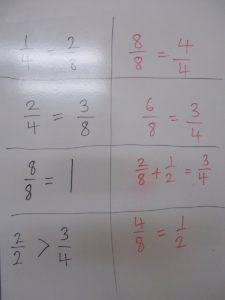 1/4 = 2/8
8/8 = 4/4
2/4 = 3/8
6/8 = 3/4
8/8 = 1
2/8 + 1/2 = 3/4
2/2 > 3/4
4/8 = 1/2